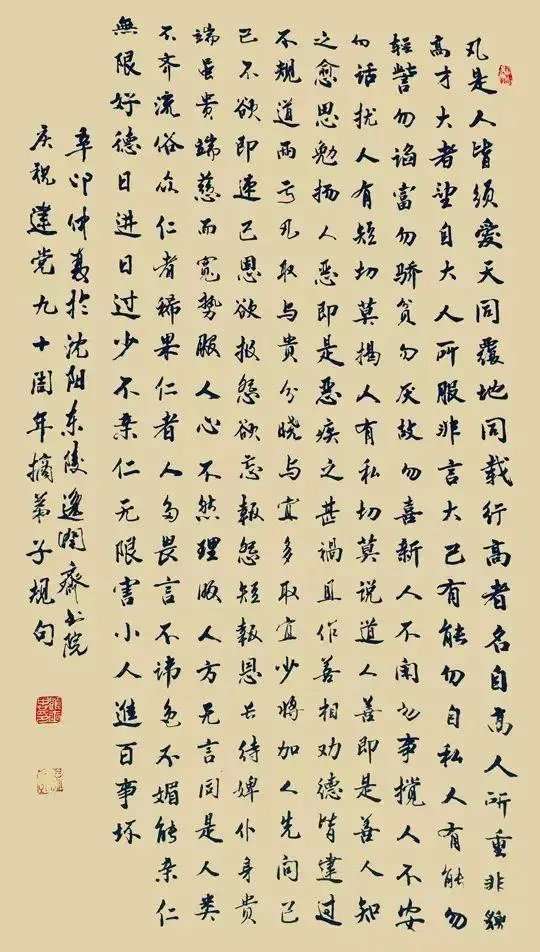 凡是人皆须愛天同覆地同载行高者名自高人所重非貌
高才大者望自大人所服非言大己有能勿自私人有能勿
轻訾勿谄富勿骄贫勿厌故勿喜新人不闲勿事搅人不安
勿话扰人有短切莫揭人有私切莫说道人善即是善人知
之愈思勉扬人恶即是恶疾之甚祸且作善相劝德皆建过
不规道两亏凡取与贵分晓与宜多取宜少将加人先问己
己不欲即速已恩欲报怨欲忘報怨短報恩长待婢仆身贵
端虽贵端慈而宽势服人心不然理服人方无言同是人类
不齐流俗众仁者稀果仁者人多畏言不讳色不媚能亲仁
無限好德日进日过少不亲仁无限害小人進百事坏
辛卯仲夏於沈阳东陵齋书院
庆祝建党九十周年摘弟子规句